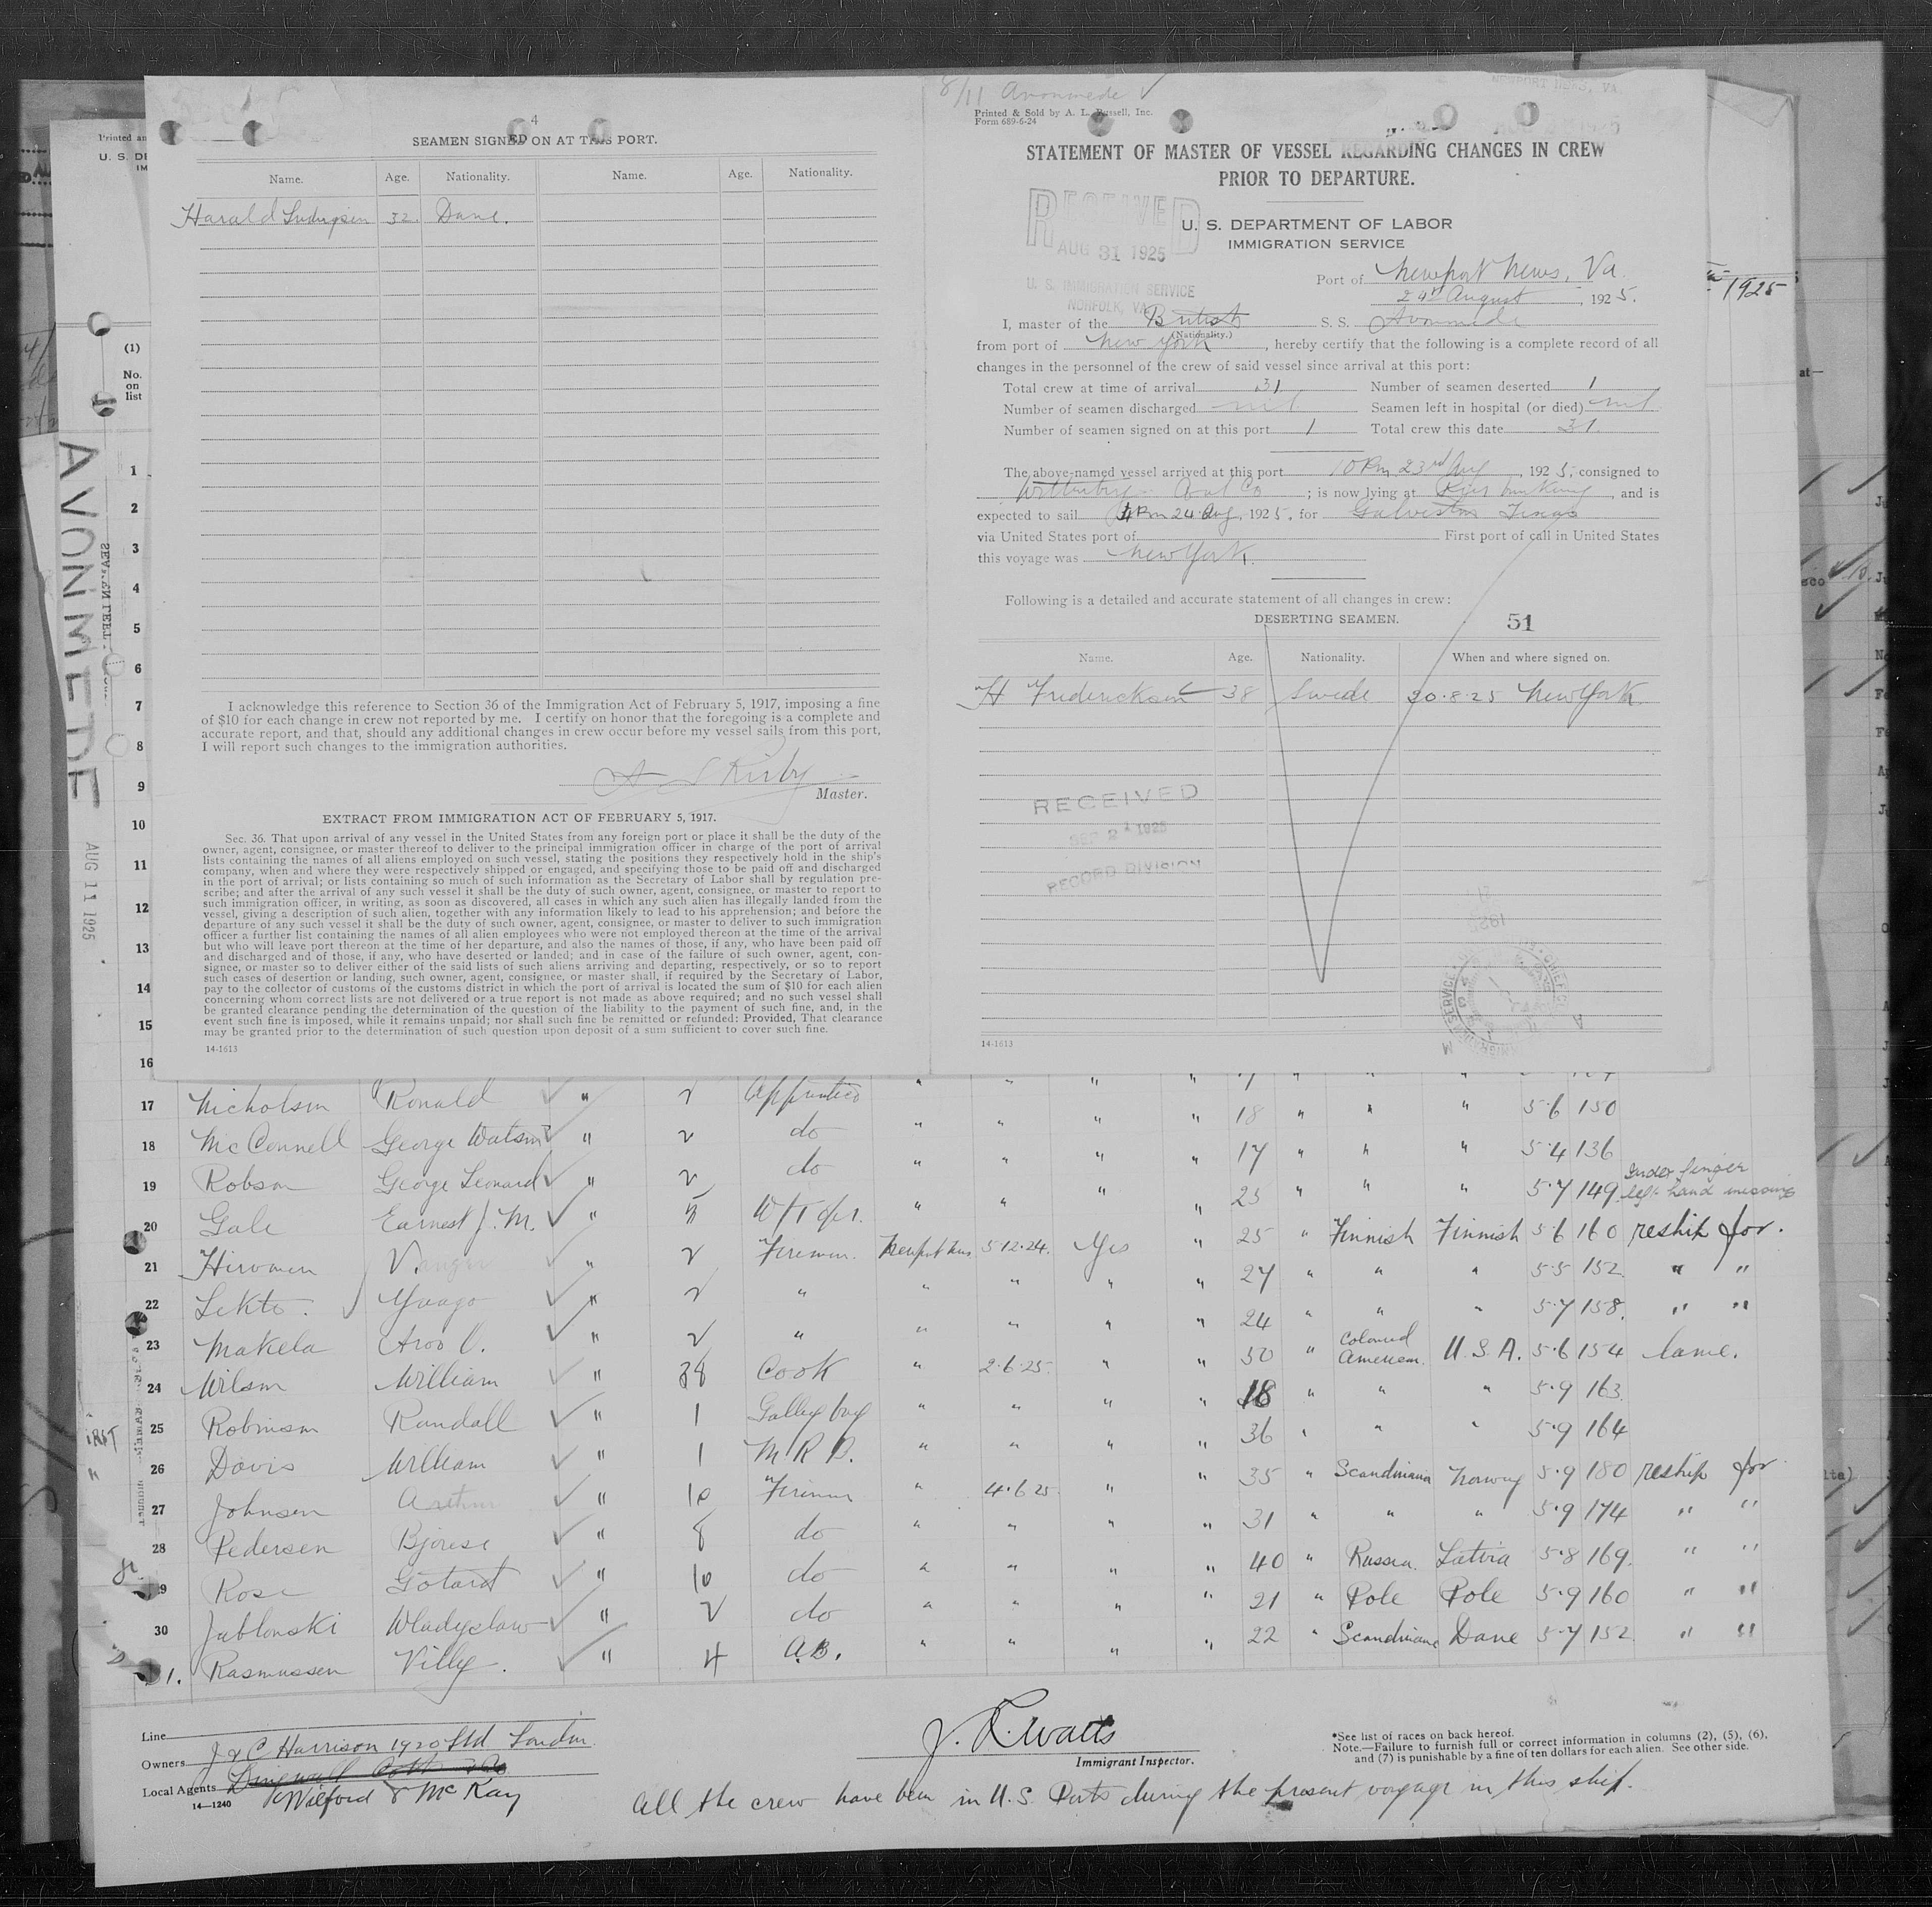 4
SEAMEN SIGNED ON AT THIS PORT.
Name. Age. Nationality. Name. Age. Nationality.
Harald 32. Dane.
I acknowledge this reference to Section 36 of the Immigration Act of February 5, 1917, imposing a fine
of $10 for each change in crew not reported by me. I certify on honor that the foregoing is a complete and
accurate report, and that, should any additional changes in crew occur before my vessel sails from this port,
I will report such changes to the immigration authorities.
Kirby
Master.
EXTRACT FROM IMMIGRATION ACT OF FEBRUARY 5, 1917.
Sec. 36. That upon arrival of any vessel in the United States from any foreign port or place it shall be the duty of the
owner, agent, consignee, or master thereof to deliver to the principal immigration officer in charge of the port of arrival
lists containing the names of all aliens employed on such vessel, stating the positions they respectively hold in the ship's
company, when and where they were respectively shipped or engaged, and specifying those to be paid off and discharged
in the port of arrival; or lists containing so much of such information as the Secretary of Labor shall by regulation pre-
scribe; and after the arrival of any such vessel it shall be the duty of such owner, agent, consignee, or master to report to
such immigration officer, in writing, as soon as discovered, all cases in which any such alien has illegally landed from the
vessel, giving a description of such alien, together with any information likely to lead to his apprehension; and before the
departure of any such vessel it shall be the duty of such owner, agent, consignee, or master to deliver to such immigration
officer a further list containing the names of all alien employees who were not employed thereon at the time of the arrival
but who will leave port thereon at the time of her departure, and also the names of those, if any, who have been paid off
and discharged and of those, if any, who have deserted or landed; and in case of the failure of such owner, agent, con-
signee, or master so to deliver either of the said lists of such aliens arriving and departing, respectively, or so to report
such cases of desertion or landing, such owner, agent, consignee, or master shall, if required by the Secretary of Labor,
pay to the collector of customs of the customs district in which the port of arrival is located the sum of $10 for each alien
concerning whom correct lists are not delivered or a true report is not made as above required; and no such vessel shall
be granted clearance pending the determination of the question of the liability to the payment of such fine, and, in the
event such fine is imposed, while it remains unpaid; nor shall such fine be remitted or refunded: Provided, That clearance
may be granted prior to the determination of such question upon deposit of a sum sufficient to cover such fine.
14-1613
8/11 Avonmede
Printed & Sold by A. L. Russell, Inc.
Form 689-6-24
STATEMENT OF MASTER OF VESSEL REGARDING CHANGES IN CREW
PRIOR TO DEPARTURE.
RECEIVED
AUG 31 1925
U. S. IMMIGRATION SERVICE
NORFOLK, VA.
U. S. DEPARTMENT OF LABOR
IMMIGRATION SERVICE
Port of Newport News, Va.
24th August, 1925.
I, master of the British S. S. Avonmede
(Nationality.)
from port of New York, hereby certify that the following is a complete record of all
changes in the personnel of the crew of said vessel since arrival at this port:
Total crew at time of arrival 31 Number of seamen deserted 1
Number of seamen discharged nil Seamen left in hospital (or died) nil
Number of seamen signed on at this port 1 Total crew this date 31.
The above-named vessel arrived at this port 10 Pm 23rd Aug, 1925, consigned to
Coal Co; is now lying at Pier bunkering, and is
expected to sail 4 Pm 24 Aug, 1925, for Galveston Texas
via United States port of First port of call in United States
this voyage was New York.
Following is a detailed and accurate statement of all changes in crew:
DESERTING SEAMEN. 51
Name. Age. Nationality. When and where signed on.
H Frederickson 38 Swede 20.8.25 New York.
RECEIVED
SEP 2 1925
RECORD DIVISION
14-1613
AVONMEDE
AUG 11 1925
1925
(1)
No.
on
list
1
2
3
4
5
6
7
8
9
10
11
12
13
14
15
16
17 Nicholson Ronald " 2 Apprentice " " " " 18 " " " 5.6 150
18 McConnell George Watson " 2 do " " " " 17 " " " 5.4 136
19 Robson George Leonard " 2 do " " " " 23 " " " 5.7 149 Index finger left hand missing
20 Gale Earnest J. M. " 5 W/T Opr. " " " " 25 " Finnish Finnish 5.6 160 reship for.
21 Hirvonen " 2 Fireman. Newport News 5.12.24. Yes " 27 " " " 5.5 152 " "
22 Lekto. Yaago " 2 " " " " " 24 " " " 5.7 158. " "
23 Makela " 2 " " " " " 50 " Colored American. U.S.A. 5.6 154 lame.
24 Wilson William " 28 Cook " 2.6.25. " " 18 " " " 5.9 163
25 Robinson Randall " 1 Galley boy " " " " 36 " " " 5.9 164
26 Davis William " 1 M.R.B. " " " " 35 " Scandinavia Norway 5.9 180 reship for
27 Johnsen Arthur " 10 Fireman " 4.6.25. " " 31 " " " 5.9 174 " "
28 Pedersen " 8 do " " " " 40 " Russia. Latvia 5.8 169. " "
29 Rose Gotard " 10 do " " " " 21 " Pole Pole 5.9 160 " "
30 Jablonski Wladyslaw " 2 do " " " " 22 " Scandinavia Dane 5.7 152 " "
31. Rasmussen Villy. " 4 A.B. " " " "
Line
Owners J & C Harrison 1920 Ltd London.
Local Agents Dingwall
Wilford & McKay
14—1240
J. R. Watts
Immigrant Inspector.
*See list of races on back hereof.
Note.—Failure to furnish full or correct information in columns (2), (5), (6),
and (7) is punishable by a fine of ten dollars for each alien. See other side.
All the crew have been in U.S. Ports during the present voyage in this ship.